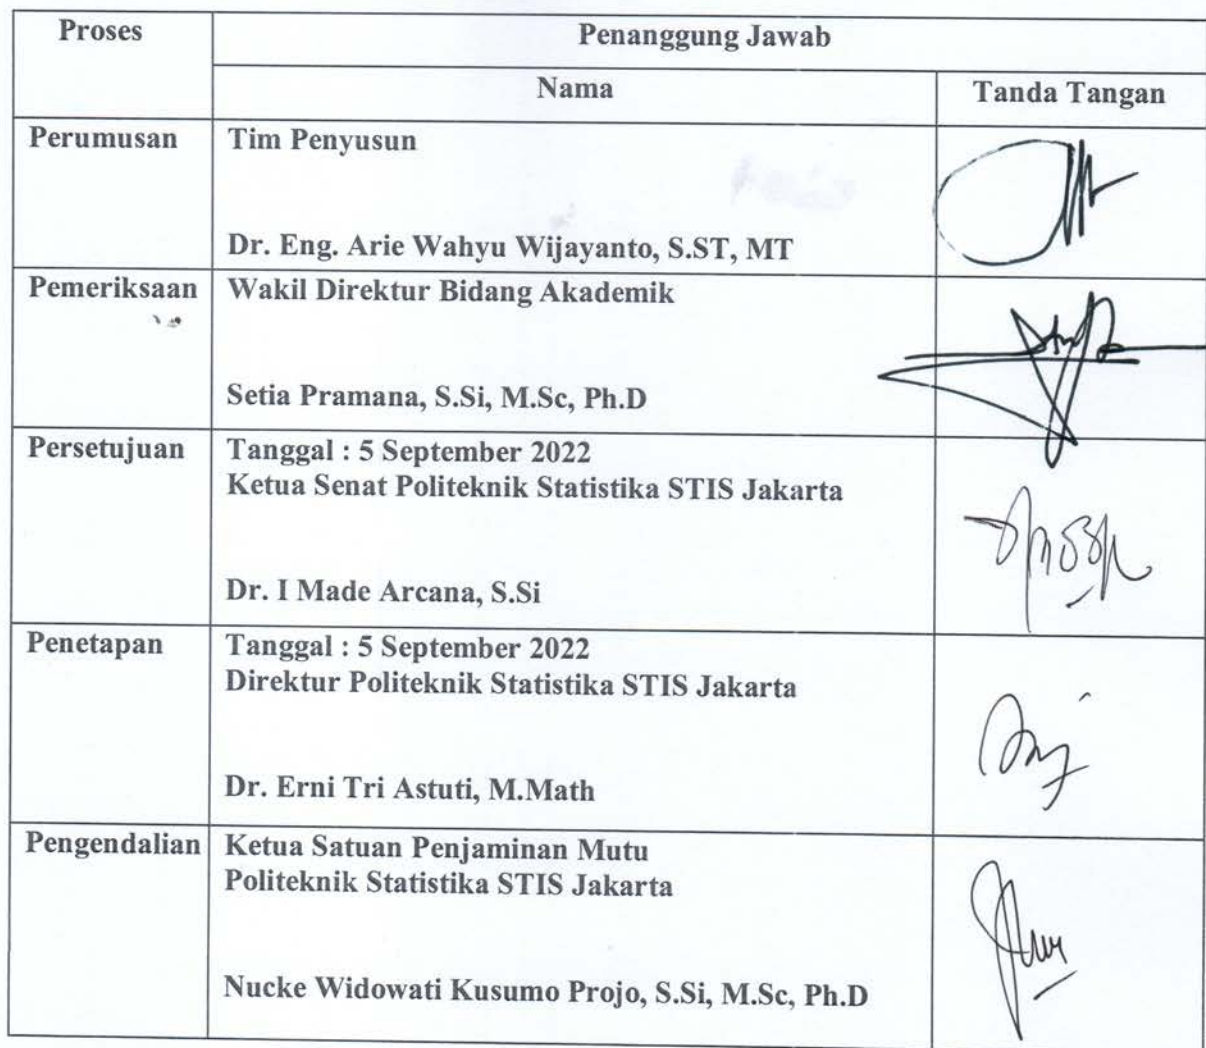 Proses
Penanggung Jawab
Nama
Tanda Tangan
Perumusan
Tim Penyusun
Dr. Eng. Arie Wahyu Wijayanto, S.ST, MT
Pemeriksaan
Wakil Direktur Bidang Akademik
Setia Pramana, S.Si, M.Sc, Ph.D
Persetujuan
Tanggal : 5 September 2022
Ketua Senat Politeknik Statistika STIS Jakarta
Dr. I Made Arcana, S.Si
Penetapan
Tanggal : 5 September 2022
Direktur Politeknik Statistika STIS Jakarta
Dr. Erni Tri Astuti, M.Math
Pengendalian
Ketua Satuan Penjaminan Mutu
Politeknik Statistika STIS Jakarta
Nucke Widowati Kusumo Projo, S.Si, M.Sc, Ph.D